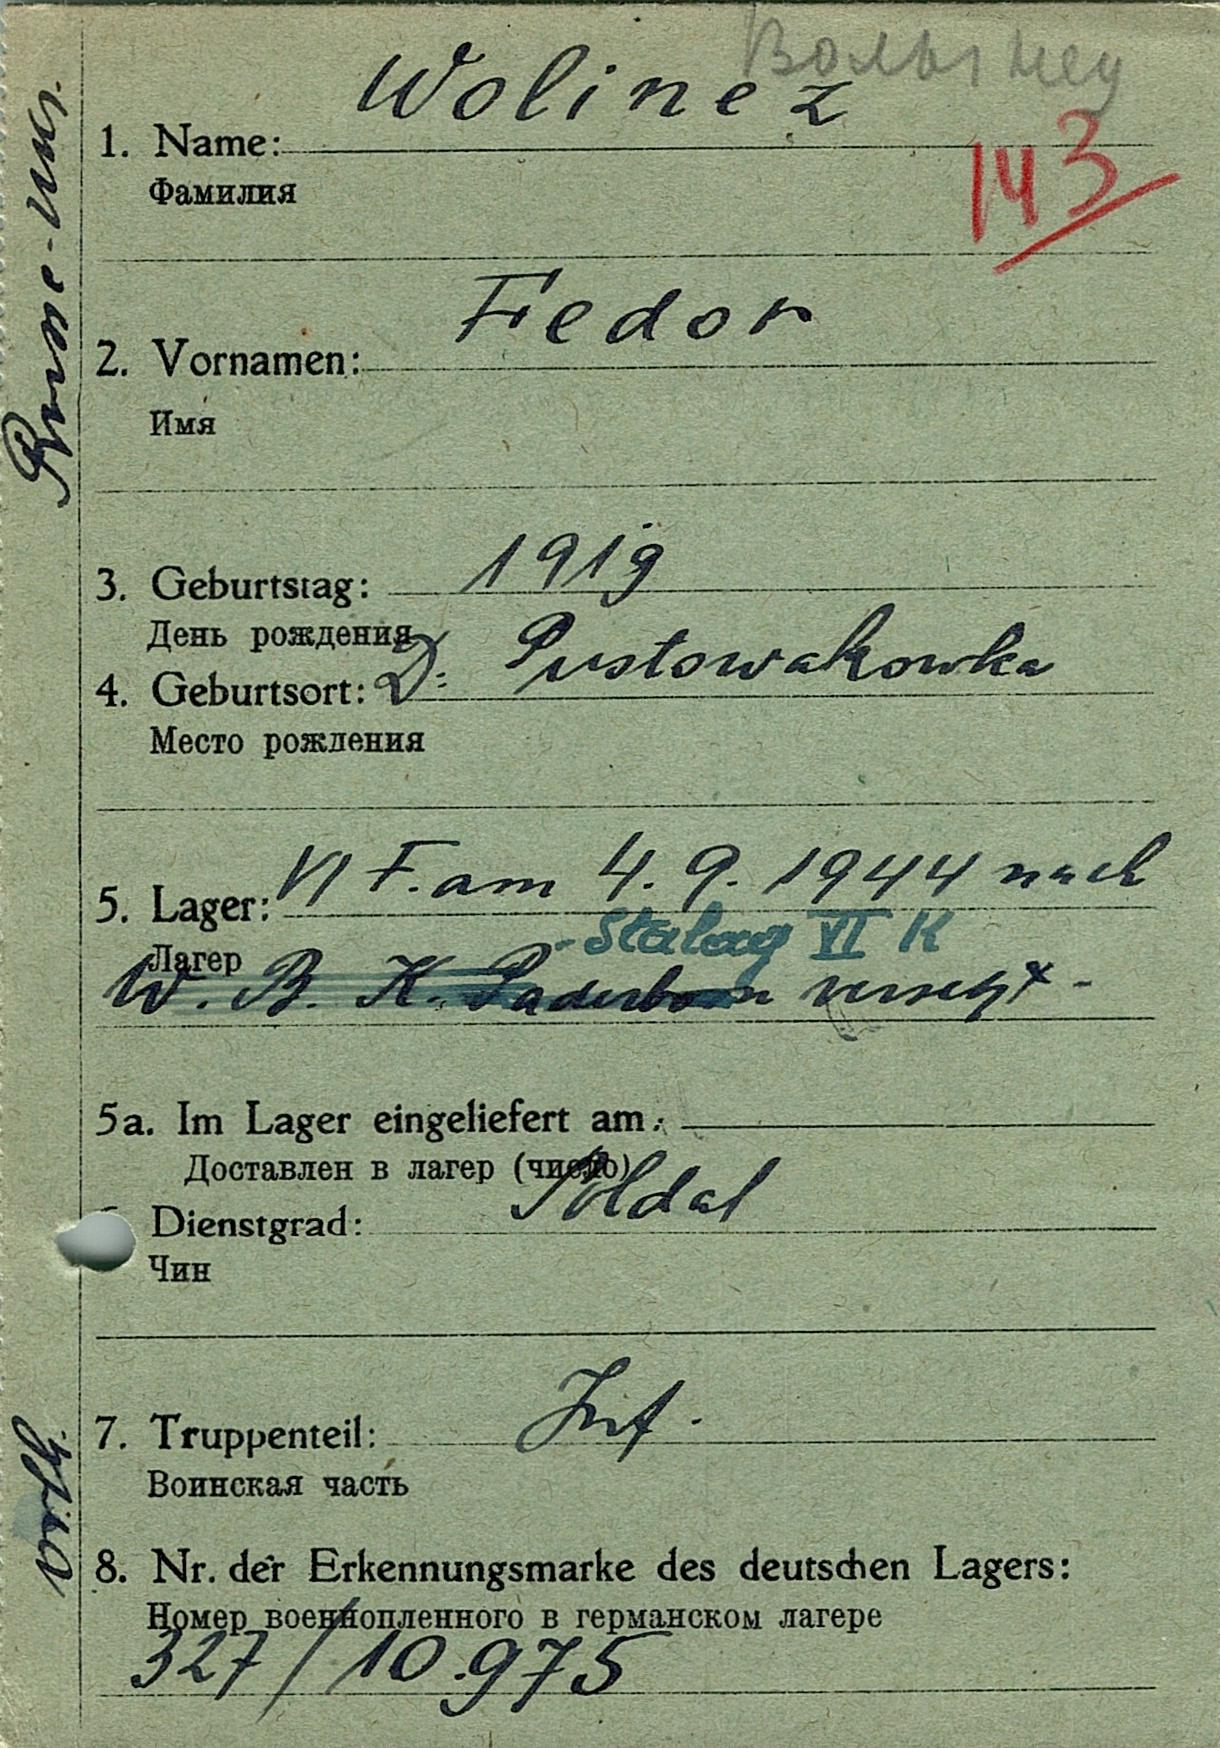 Волынец
Wolinez
1. Name:
Фамилия
143
Fedor
2. Vornamen:
Имя
1919
3. Geburtstag:
День рождения
4. Geburtsort: D. Pustowakowka
Место рождения
5. Lager: VI F. am 4. 9. 1944 nach
- Stalag VI K
Лагер
W. B. K. Paderborn versetzt -
5a. Im Lager eingeliefert am:
Доставлен в лагер (число)
Soldat
Dienstgrad:
Чин
7. Truppenteil: Inf.
Воинская часть
8. Nr. der Erkennungsmarke des deutschen Lagers:
Номер военнопленного в германском лагере
327/10.975
orth.